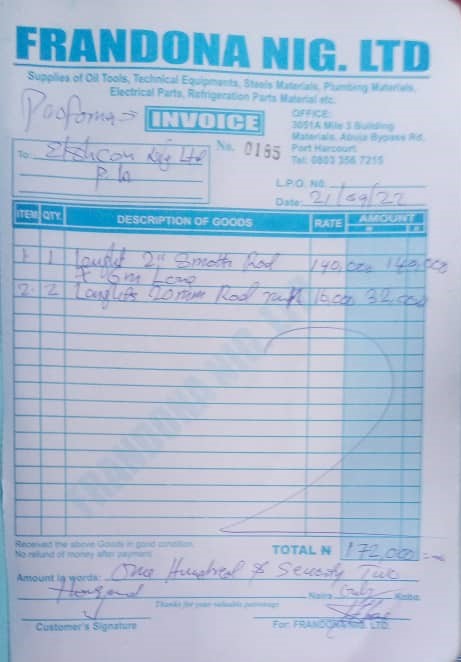 FRANDONA NIG. LTD
Supplies of Oil Tools, Technical Equipments, Steels Materials, Plumbing Materials,
Electrical Parts, Refrigeration Parts Material etc.
INVOICE
OFFICE:
3051A Mile 3 Building
Materials, Abuja Bypass Rd.
Port Harcourt
Tel: 0803 356 7215
No. 0185
To: Nig Ltd
P.H
L.P.O. NO.
Date: 21/09/22
ITEM QTY. DESCRIPTION OF GOODS RATE AMOUNT
N K
1 1 2" Smooth Rod 140,000 140,000
x 6m Long
2 2 20mm Rod 16,000 32,000
FRANDONA NIG. LTD
Received the above Goods in good condition.
No refund of money after payment
TOTAL N 172,000 =
Amount in words: One Hundred & Seventy Two
Thousand Naira Only Kobo
Thanks for your valuable patronage
Customer's Signature
For: FRANDONA NIG. LTD.